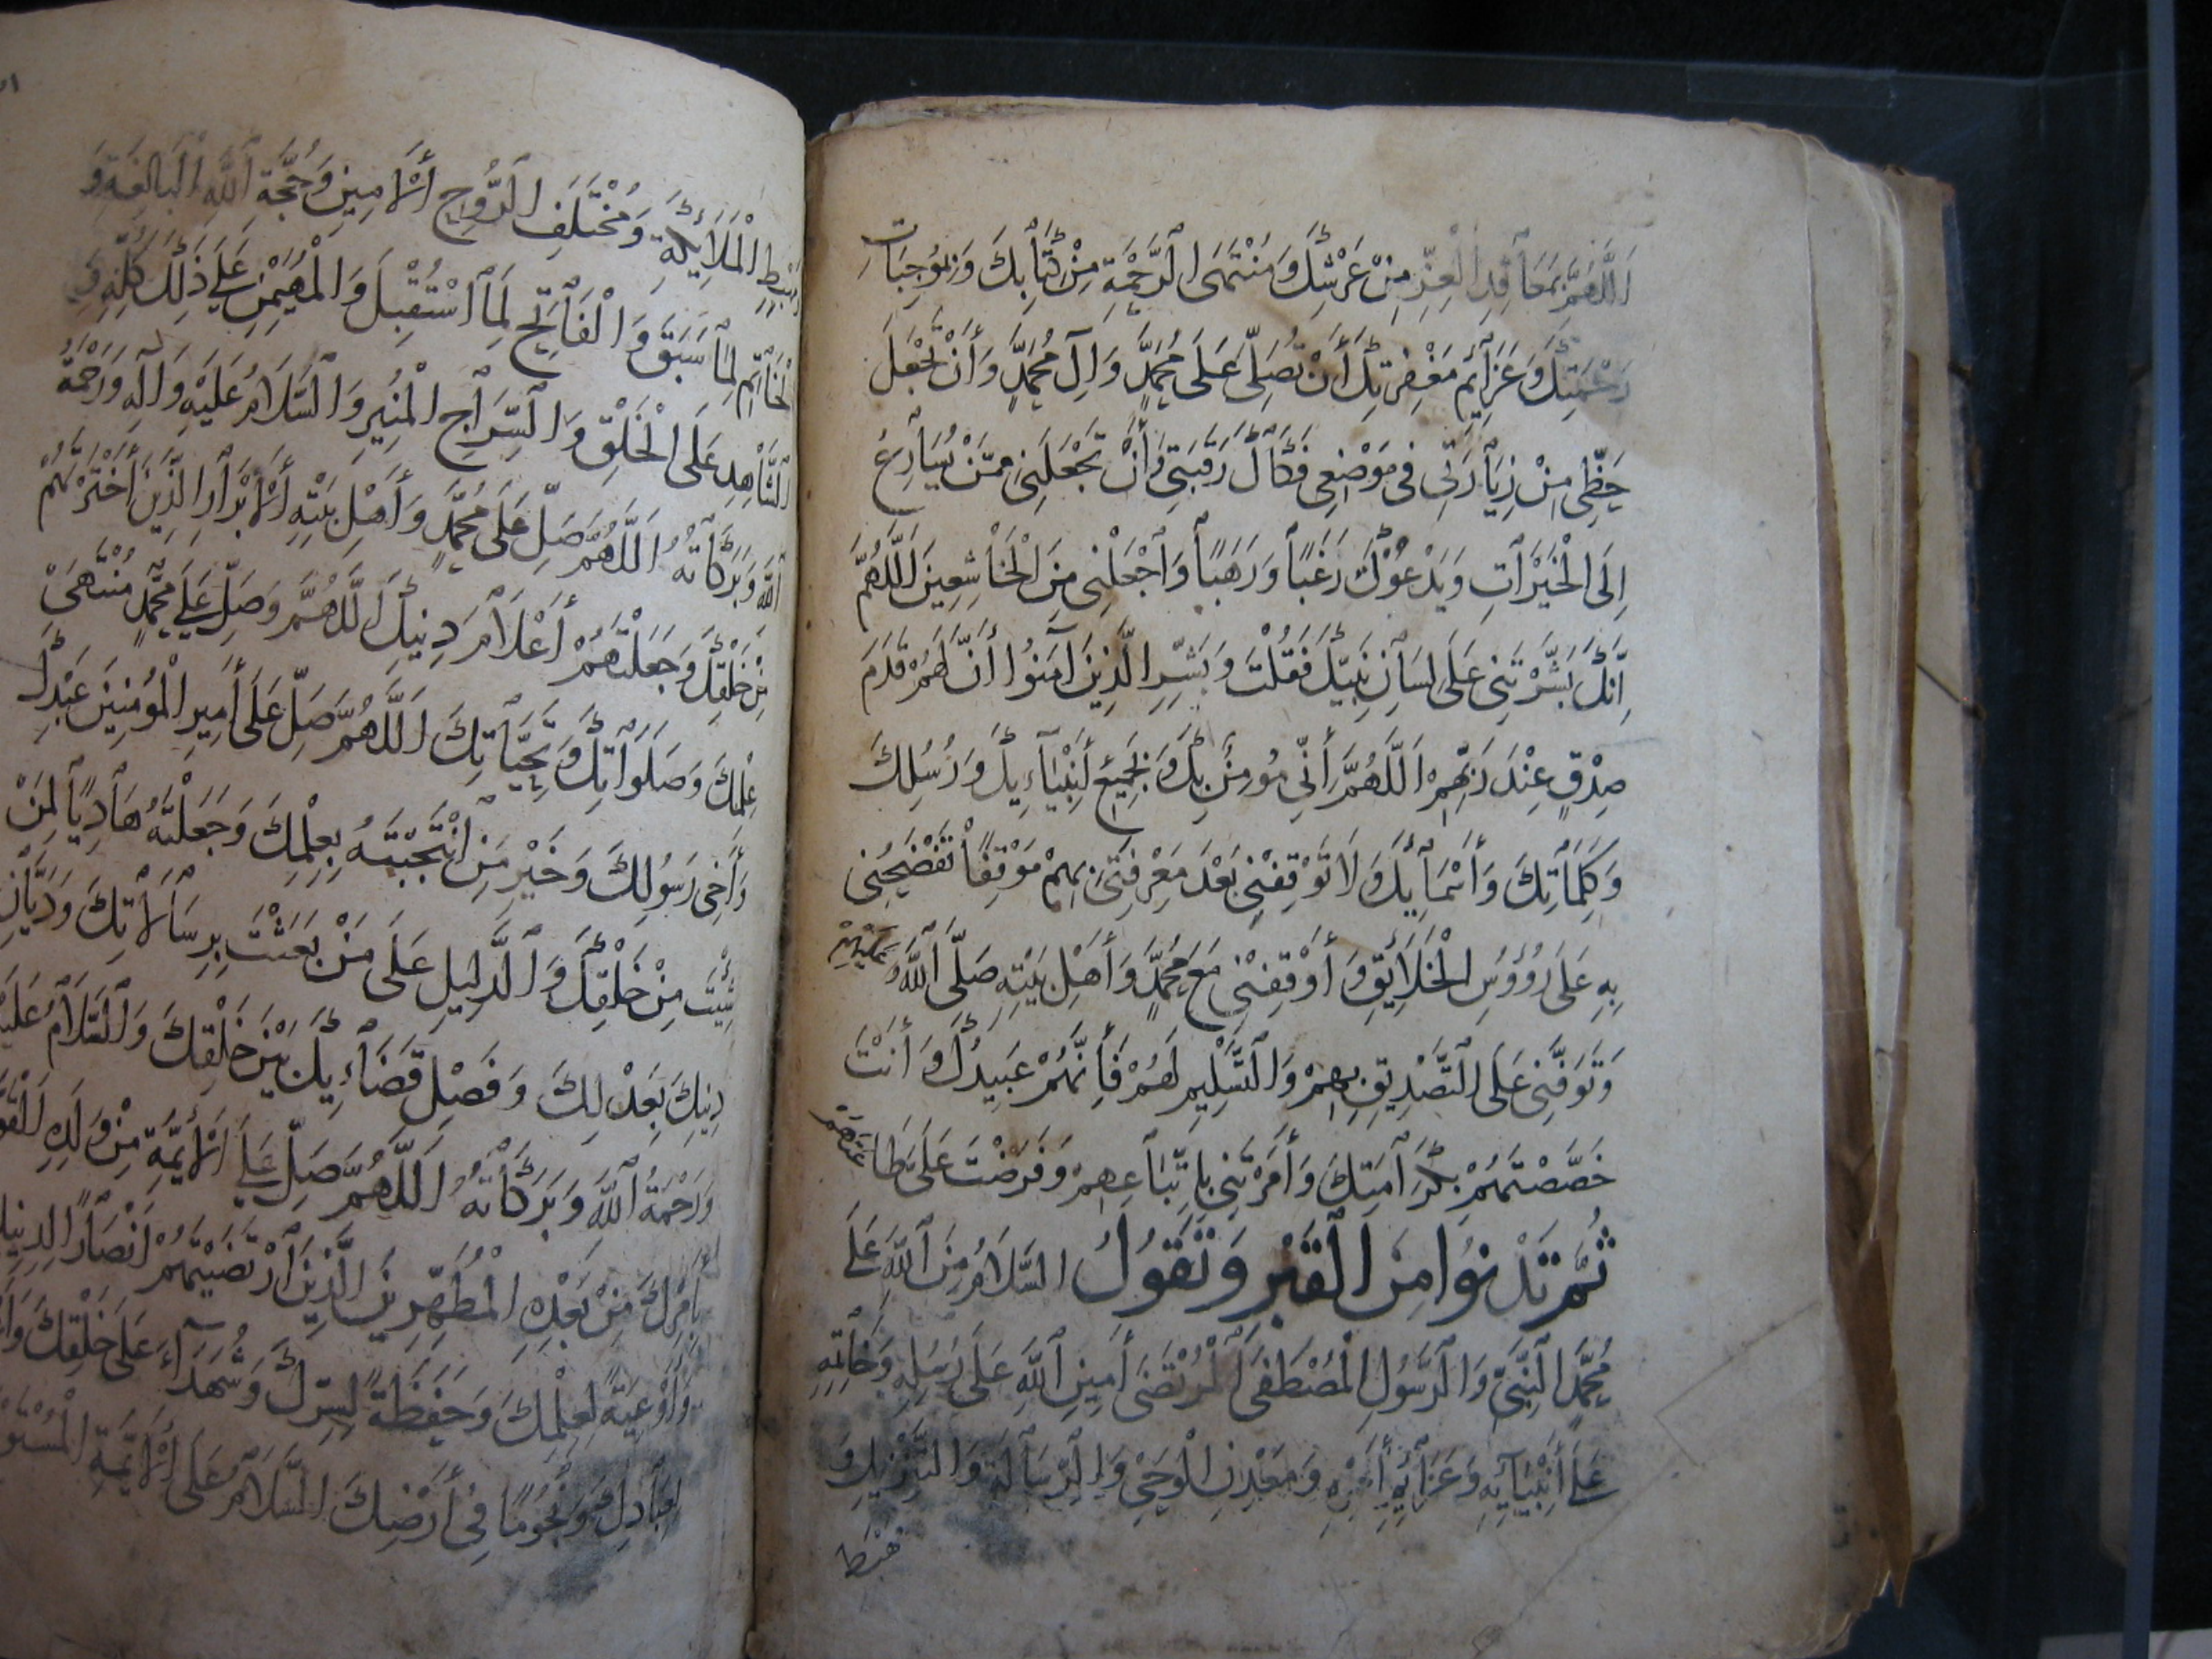 اَللَّهُمَّ بِمَعَاقِدِ الْعِزِّ مِنْ عَرْشِكَ وَمُنْتَهَى الرَّحْمَةِ مِنْ كِتَابِكَ وَبِمُوجِبَاتِ
رَحْمَتِكَ وَعَزَائِمِ مَغْفِرَتِكَ أَنْ تُصَلِّيَ عَلَى مُحَمَّدٍ وَآلِ مُحَمَّدٍ وَأَنْ تَجْعَلَ
حَظِّي مِنْ زِيَارَتِي فِي مَوْضِعِي فَكَاكَ رَقَبَتِي وَأَنْ تَجْعَلَنِي مِمَّنْ يُسَارِعُ
إِلَى الْخَيْرَاتِ وَيَدْعُوكَ رَغَبًا وَرَهَبًا وَاجْعَلْنِي مِنَ الْخَاشِعِينَ اَللَّهُمَّ
إِنَّكَ بَشَّرْتَنِي عَلَى لِسَانِ نَبِيِّكَ فَقُلْتَ وَبَشِّرِ الَّذِينَ آمَنُوا أَنَّ لَهُمْ قَدَمَ
صِدْقٍ عِنْدَ رَبِّهِمْ اَللَّهُمَّ إِنِّي مُؤْمِنٌ بِكَ وَبِجَمِيعِ أَنْبِيَاءِكَ وَرُسُلِكَ
وَكَلِمَاتِكَ وَأَسْمَائِكَ وَلَا تُوقِفْنِي بَعْدَ مَعْرِفَتِي بِهِمْ مَوْقِفًا تَفْضَحُنِي
بِهِ عَلَى رُؤُوسِ الْخَلَائِقِ وَأَوْقِفْنِي مَعَ مُحَمَّدٍ وَأَهْلِ بَيْتِهِ صَلَّى اللَّهُ عَلَيْهِمْ
وَتَوَفَّنِي عَلَى التَّصْدِيقِ بِهِمْ وَالتَّسْلِيمِ لَهُمْ فَإِنَّهُمْ عَبِيدُكَ وَأَنْتَ
خَصَصْتَهُمْ بِكَرَامَتِكَ وَأَمَرْتَنِي بِاتِّبَاعِهِمْ وَفَرَضْتَ عَلَيَّ طَاعَتَهُمْ
ثُمَّ تَدْنُوا مِنَ الْقَبْرِ وَتَقُولُ السَّلَامُ مِنَ اللَّهِ عَلَى
مُحَمَّدٍ النَّبِيِّ وَالرَّسُولِ الْمُصْطَفَى الْمُرْتَضَى أَمِينِ اللَّهِ عَلَى رُسُلِهِ وَخَاتَمِهِ
عَلَى أَنْبِيَائِهِ وَعَزَائِمِ أَمْرِهِ وَمَعْدِنِ الْوَحْيِ وَالرِّسَالَةِ وَالتَّنْزِيلِ وَ
مَهْبِطِ الْمَلَائِكَةِ وَمُخْتَلَفِ الرُّوحِ الْأَمِينِ وَحُجَّةِ اللَّهِ الْبَالِغَةِ وَ
الْخَاتِمِ لِمَا سَبَقَ وَالْفَاتِحِ لِمَا اسْتُقْبِلَ وَالْمُهَيْمِنِ عَلَى ذَلِكَ كُلِّهِ وَ
الشَّاهِدِ عَلَى الْخَلْقِ وَالسِّرَاجِ الْمُنِيرِ وَالسَّلَامُ عَلَيْهِ وَآلِهِ وَرَحْمَةُ
اللَّهِ وَبَرَكَاتُهُ اَللَّهُمَّ صَلِّ عَلَى مُحَمَّدٍ وَأَهْلِ بَيْتِهِ الْأَبْرَارِ الَّذِينَ اخْتَرْتَهُمْ
مِنْ خَلْقِكَ وَجَعَلْتَهُمْ أَعْلَامَ دِينِكَ اَللَّهُمَّ وَصَلِّ عَلَى مُحَمَّدٍ مُنْتَهَى
عِلْمِكَ وَصَلَوَاتِكَ وَتَحِيَّاتِكَ اَللَّهُمَّ صَلِّ عَلَى أَمِيرِ الْمُؤْمِنِينَ عَبْدِكَ
وَأَخِي رَسُولِكَ وَخَيْرِ مَنِ انْتَجَبْتَهُ بِعِلْمِكَ وَجَعَلْتَهُ هَادِيًا لِمَنْ
شِئْتَ مِنْ خَلْقِكَ وَالدَّلِيلِ عَلَى مَنْ بَعَثْتَ بِرِسَالَاتِكَ وَدَيَّانِ
دِينِكَ بِعَدْلِكَ وَفَصْلِ قَضَاءِكَ بَيْنَ خَلْقِكَ وَالسَّلَامُ عَلَيْهِ
وَرَحْمَةُ اللَّهِ وَبَرَكَاتُهُ اَللَّهُمَّ صَلِّ عَلَى الْأَئِمَّةِ مِنْ وَلَدِهِ
بِأَمْرِكَ مِنْ بَعْدِهِ الْمُطَهَّرِينَ الَّذِينَ ارْتَضَيْتَهُمْ أَنْصَارًا لِدِينِكَ
وَأَوْعِيَةً لِعِلْمِكَ وَحَفَظَةً لِسِرِّكَ وَشُهَدَاءَ عَلَى خَلْقِكَ
لِعِبَادِكَ وَنُجُومًا فِي أَرْضِكَ السَّلَامُ عَلَى الْأَئِمَّةِ